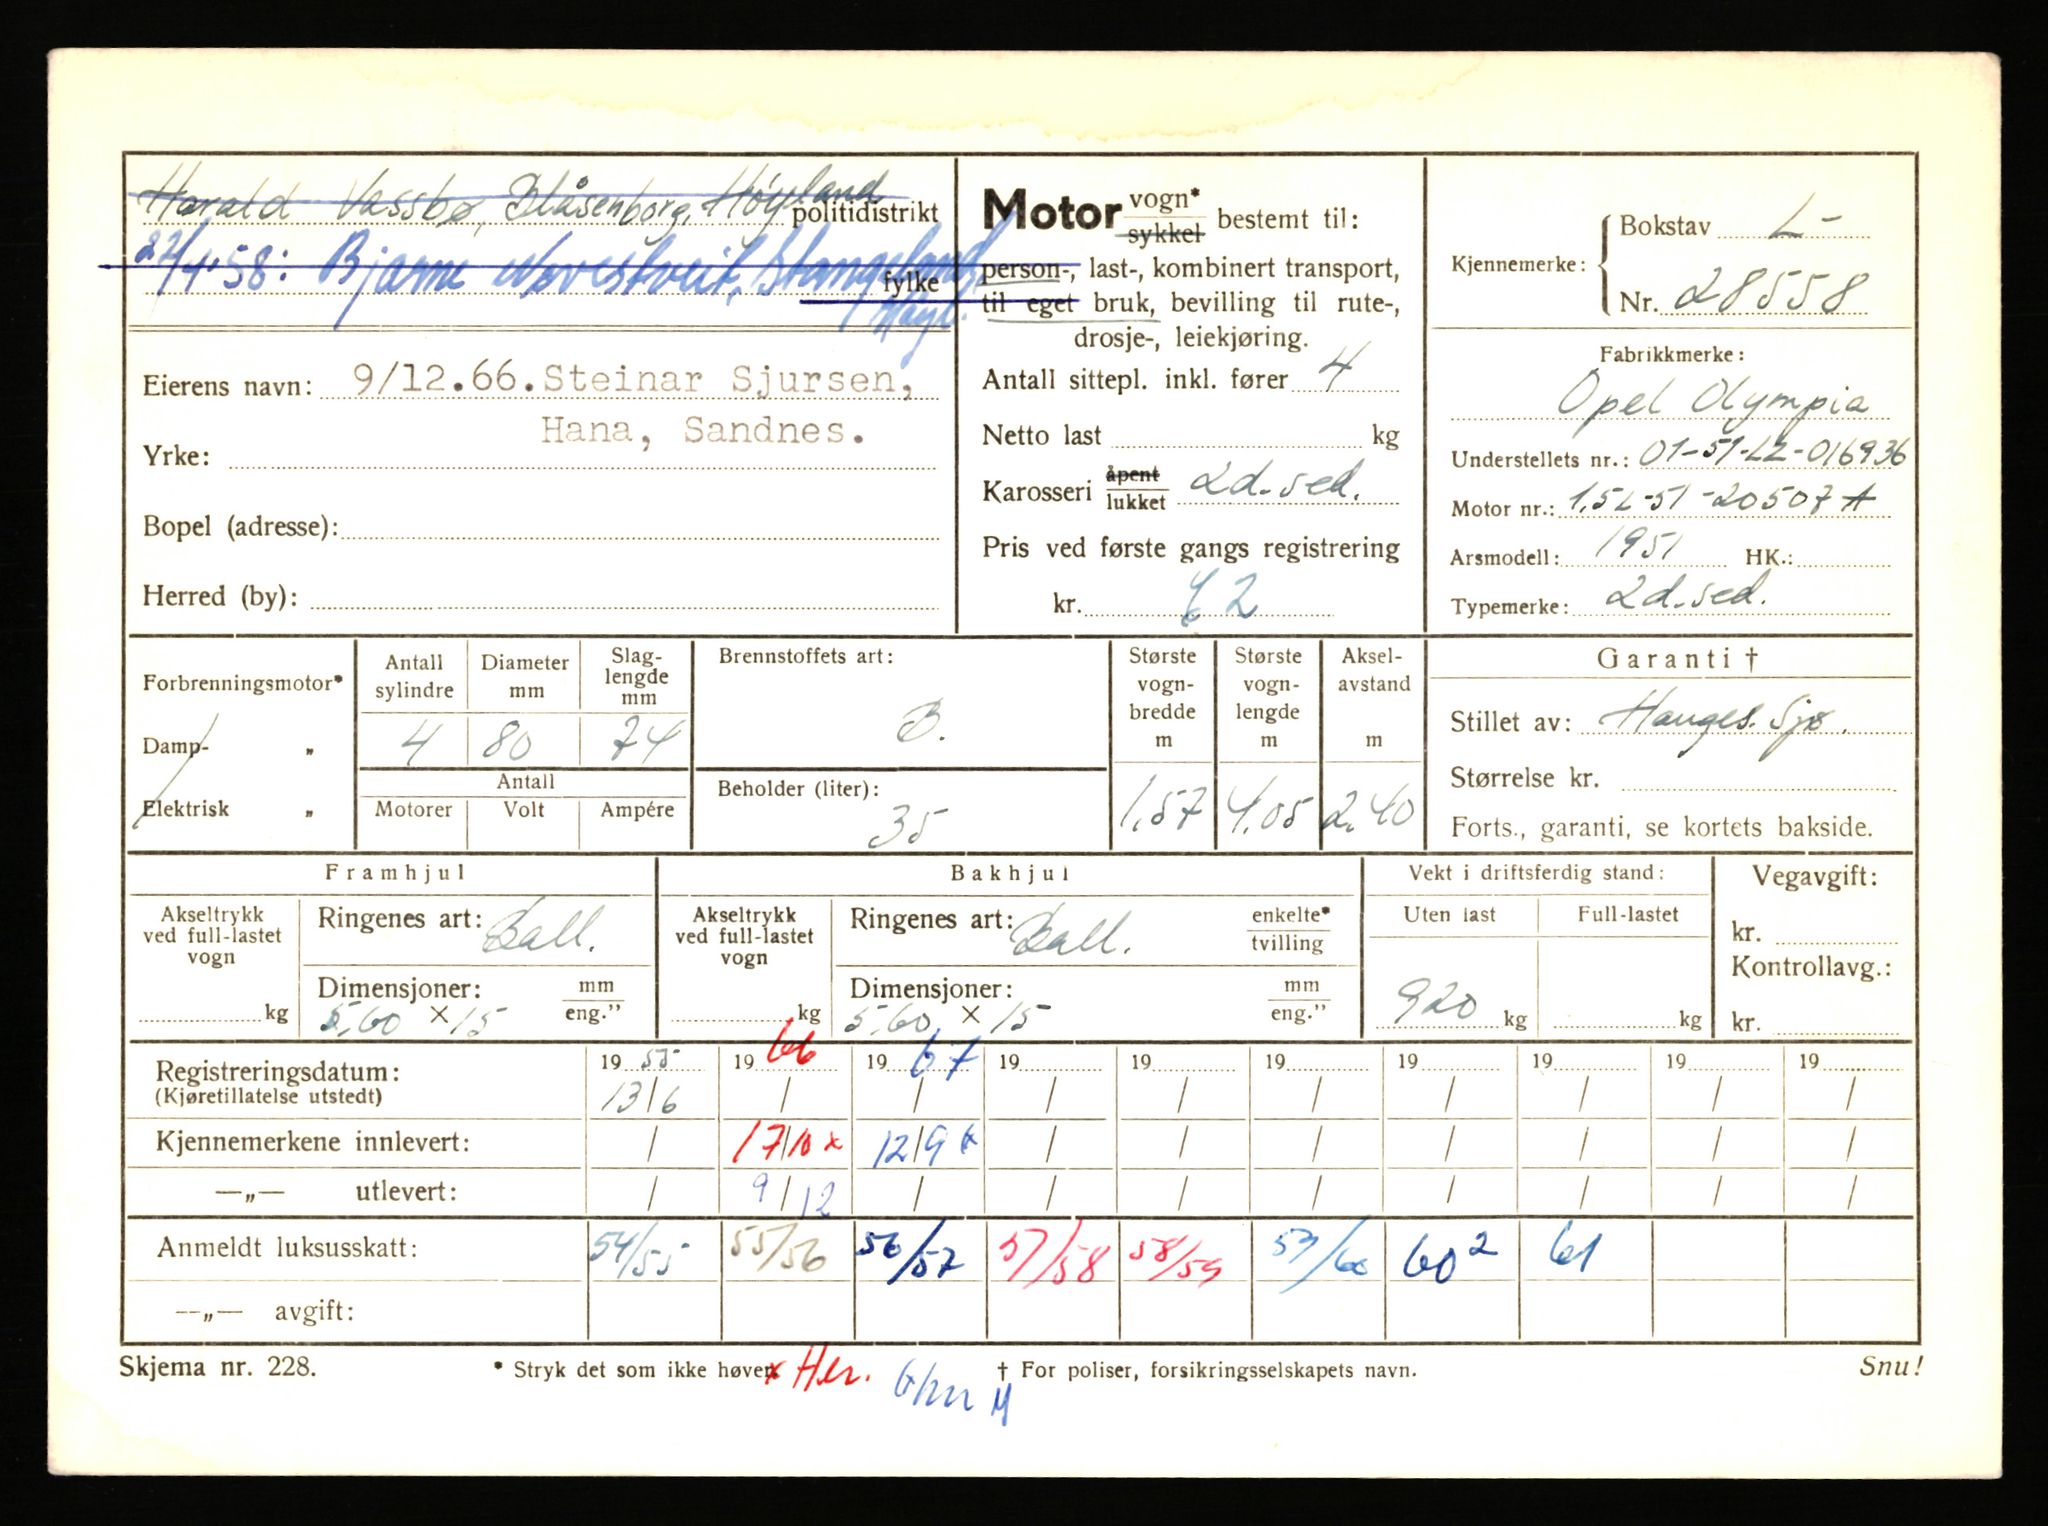 Harald Vassbø, Blåsenborg, Høyland politidistrikt
22/4.58: Bjarne Stangeland, fylke
Høyl.
Eierens navn: 9/12.66. Steinar Sjursen,
Hana, Sandnes.
Yrke:
Bopel (adresse):
Herred (by):
Motor vogn* sykkel bestemt til:
person-, last-, kombinert transport,
til eget bruk, bevilling til rute-,
drosje-, leiekjøring.
Antall sittepl. inkl. fører 4
Netto last kg
Karosseri åpent lukket 2d-sed.
Pris ved første gangs registrering
kr. 62
Kjennemerke: Bokstav L-
Nr. 28558
Fabrikkmerke:
Opel Olympia
Understellets nr.: 01-51-L2-016936
Motor nr.: 1,5L-51-20507A
Arsmodell: 1951 HK.:
Typemerke: 2d.sed.
Forbrenningsmotor*
Damp- „
Elektrisk „
Antall sylindre 4
Diameter mm 80
Slag- lengde mm 74
Antall
Motorer Volt Ampére
Brennstoffets art:
B.
Beholder (liter):
35
Største vogn- bredde m 1,57
Største vogn- lengde m 4,05
Aksel- avstand m 2,40
Garanti †
Stillet av: Hauges. Sjø.
Størrelse kr.
Forts., garanti, se kortets bakside.
Framhjul
Akseltrykk ved full-lastet vogn kg
Ringenes art: Ball.
Dimensjoner: mm eng."
5,60 × 15
Bakhjul
Akseltrykk ved full-lastet vogn kg
Ringenes art: Ball. enkelte* tvilling
Dimensjoner: mm eng."
5,60 × 15
Vekt i driftsferdig stand:
Uten last Full-lastet
920 kg kg
Vegavgift:
kr.
Kontrollavg.:
kr.
Registreringsdatum: 19 55 19 66 19 67 19 19 19 19 19 19 19
(Kjøretillatelse utstedt) 13/6 / / / / / / / / /
Kjennemerkene innlevert: / 17/10 x 12/9 x / / / / / / /
—„— utlevert: / 9/12 / / / / / / / /
Anmeldt luksusskatt: 54/55 55/56 56/57 57/58 58/59 59/60 60² 61
—„— avgift:
Skjema nr. 228. * Stryk det som ikke høver. † For poliser, forsikringsselskapets navn. Snu!
x Her.